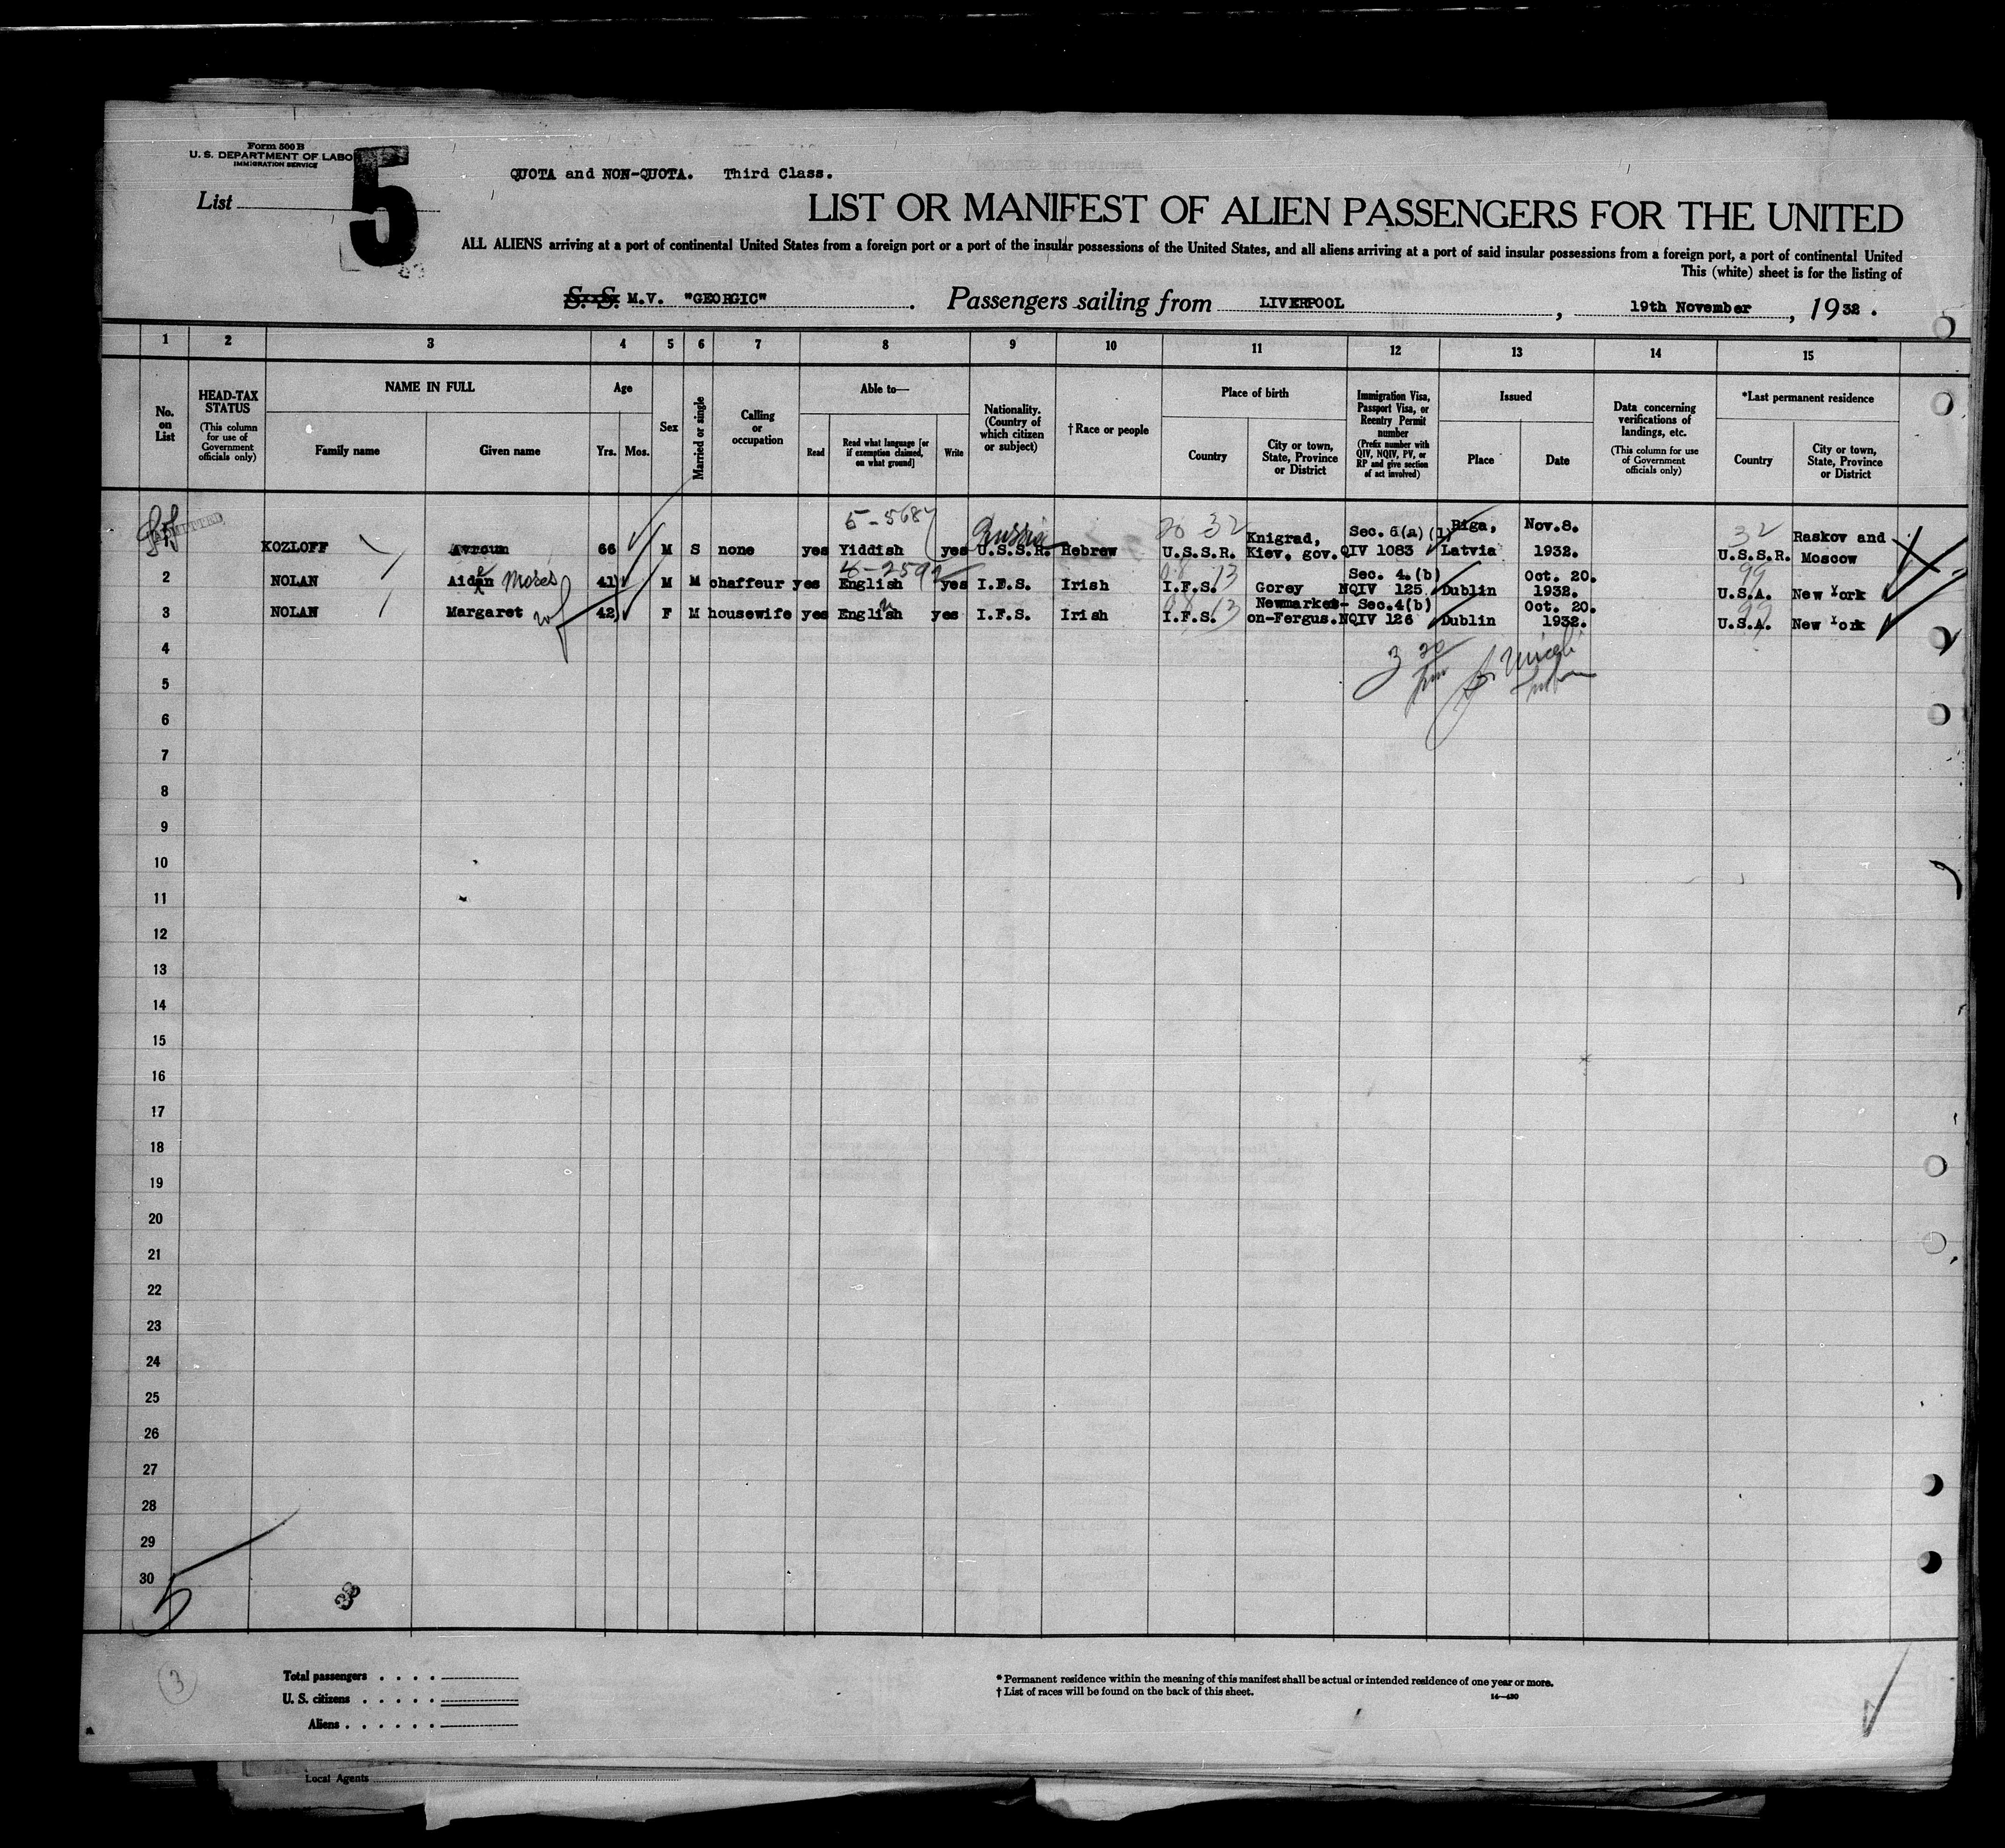 Form 500 B
U. S. DEPARTMENT OF LABO
IMMIGRATION SERVICE
List
5
QUOTA and NON-QUOTA. Third Class.
LIST OR MANIFEST OF ALIEN PASSENGERS FOR THE UNITED
ALL ALIENS arriving at a port of continental United States from a foreign port or a port of the insular possessions of the United States, and all aliens arriving at a port of said insular possessions from a foreign port, a port of continental United
This (white) sheet is for the listing of
S. S. M.V. "GEORGIC" . Passengers sailing from LIVERPOOL , 19th November , 1932 .
1 2 3 4 5 6 7 8 9 10 11 12 13 14 15
No. on List
HEAD-TAX STATUS (This column for use of Government officials only)
NAME IN FULL
Family name
Given name
Age
Yrs. Mos.
Sex
Married or single
Calling or occupation
Able to—
Read
Read what language [or if exemption claimed, on what ground]
Write
Nationality. (Country of which citizen or subject)
† Race or people
Place of birth
Country
City or town, State, Province or District
Immigration Visa, Passport Visa, or Reentry Permit number (Prefix number with QIV, NQIV, PV, or RP and give section of act involved)
Issued
Place
Date
Data concerning verifications of landings, etc. (This column for use of Government officials only)
*Last permanent residence
Country
City or town, State, Province or District
ADMITTED
5-5687 Russia 32 Knigrad, Sec. 6(a)(1) Riga, Nov.8. 32 Raskov and
KOZLOFF Avroum 66 M S none yes Yiddish yes U.S.S.R. Hebrew U.S.S.R. Kiev. gov. QIV 1083 Latvia 1932. U.S.S.R. Moscow
13 Sec. 4.(b) Oct. 20. 99
2 NOLAN Aidan Moses 41 M M chaffeur yes English yes I.F.S. Irish I.F.S. Gorey NQIV 125 Dublin 1932. U.S.A. New York
13 Newmarket- Sec.4(b) Oct. 20. 99
3 NOLAN Margaret wf 42 F M housewife yes English yes I.F.S. Irish I.F.S. on-Fergus. NQIV 126 Dublin 1932. U.S.A. New York
4
5
6
7
8
9
10
11
12
13
14
15
16
17
18
19
20
21
22
23
24
25
26
27
28
29
30
5
38
3
Total passengers . . . .
U. S. citizens . . . . .
Aliens . . . . . .
* Permanent residence within the meaning of this manifest shall be actual or intended residence of one year or more.
† List of races will be found on the back of this sheet.
14—430
Local Agents